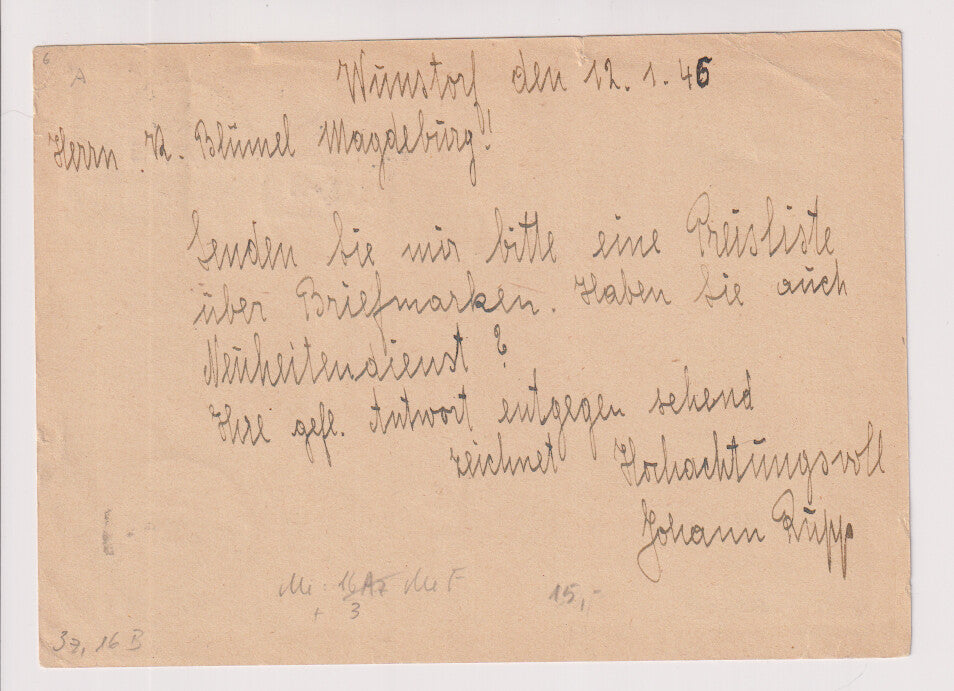 6
A
Wunstorf den 12. 1. 46
Herrn K. Blümel Magdeburg!
Senden Sie mir bitte eine Preisliste
über Briefmarken. Haben Sie auch
Neuheitendienst?
Ihre gefl. Antwort entgegen sehend
zeichnet Hochachtungsvoll
Johann Rupp
Me F 15,-
+ 3
3z, 16 B